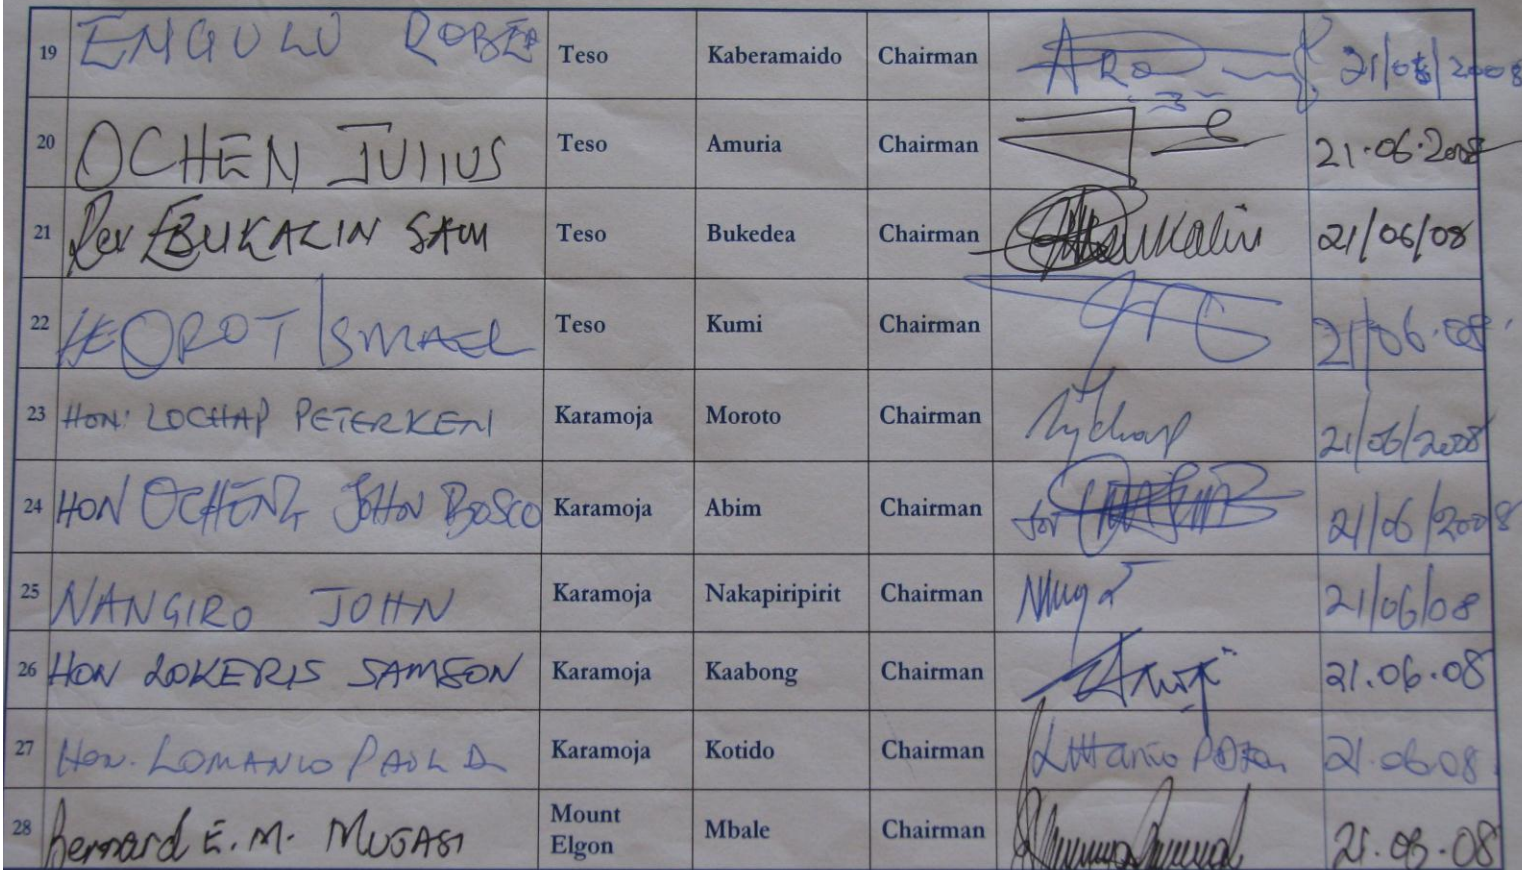 19 ENGULU ROBERT Teso Kaberamaido Chairman 21/06/2008
20 OCHEN JULIUS Teso Amuria Chairman 21.06.2008
21 Rev EBUKALIN SAM Teso Bukedea Chairman Ebukalin 21/06/08
22 OROT ISMAEL Teso Kumi Chairman 21/06.08
23 HON: LOCHAP PETERKEN Karamoja Moroto Chairman 21/06/2008
24 HON OCHENG JOHN BOSCO Karamoja Abim Chairman for 21/06/2008
25 NANGIRO JOHN Karamoja Nakapiripirit Chairman 21/06/08
26 HON LOKERIS SAMSON Karamoja Kaabong Chairman 21.06.08
27 Hon. LOMANIO PAUL Karamoja Kotido Chairman 21.06.08
28 Bernard E.M. MUGASI Mount Elgon Mbale Chairman 21.06.08